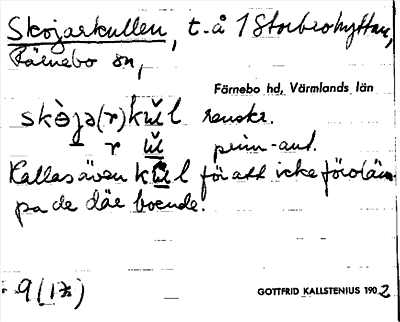 Skojarkullen, t. å 1 Storbrohyttan,
Färnebo sn,
Färnebo hd, Värmlands län
renskr.
prim-aut.
Kallas även för att icke föroläm-
pa de där boende.
9 (17)
GOTTFRID KALLSTENIUS 1902